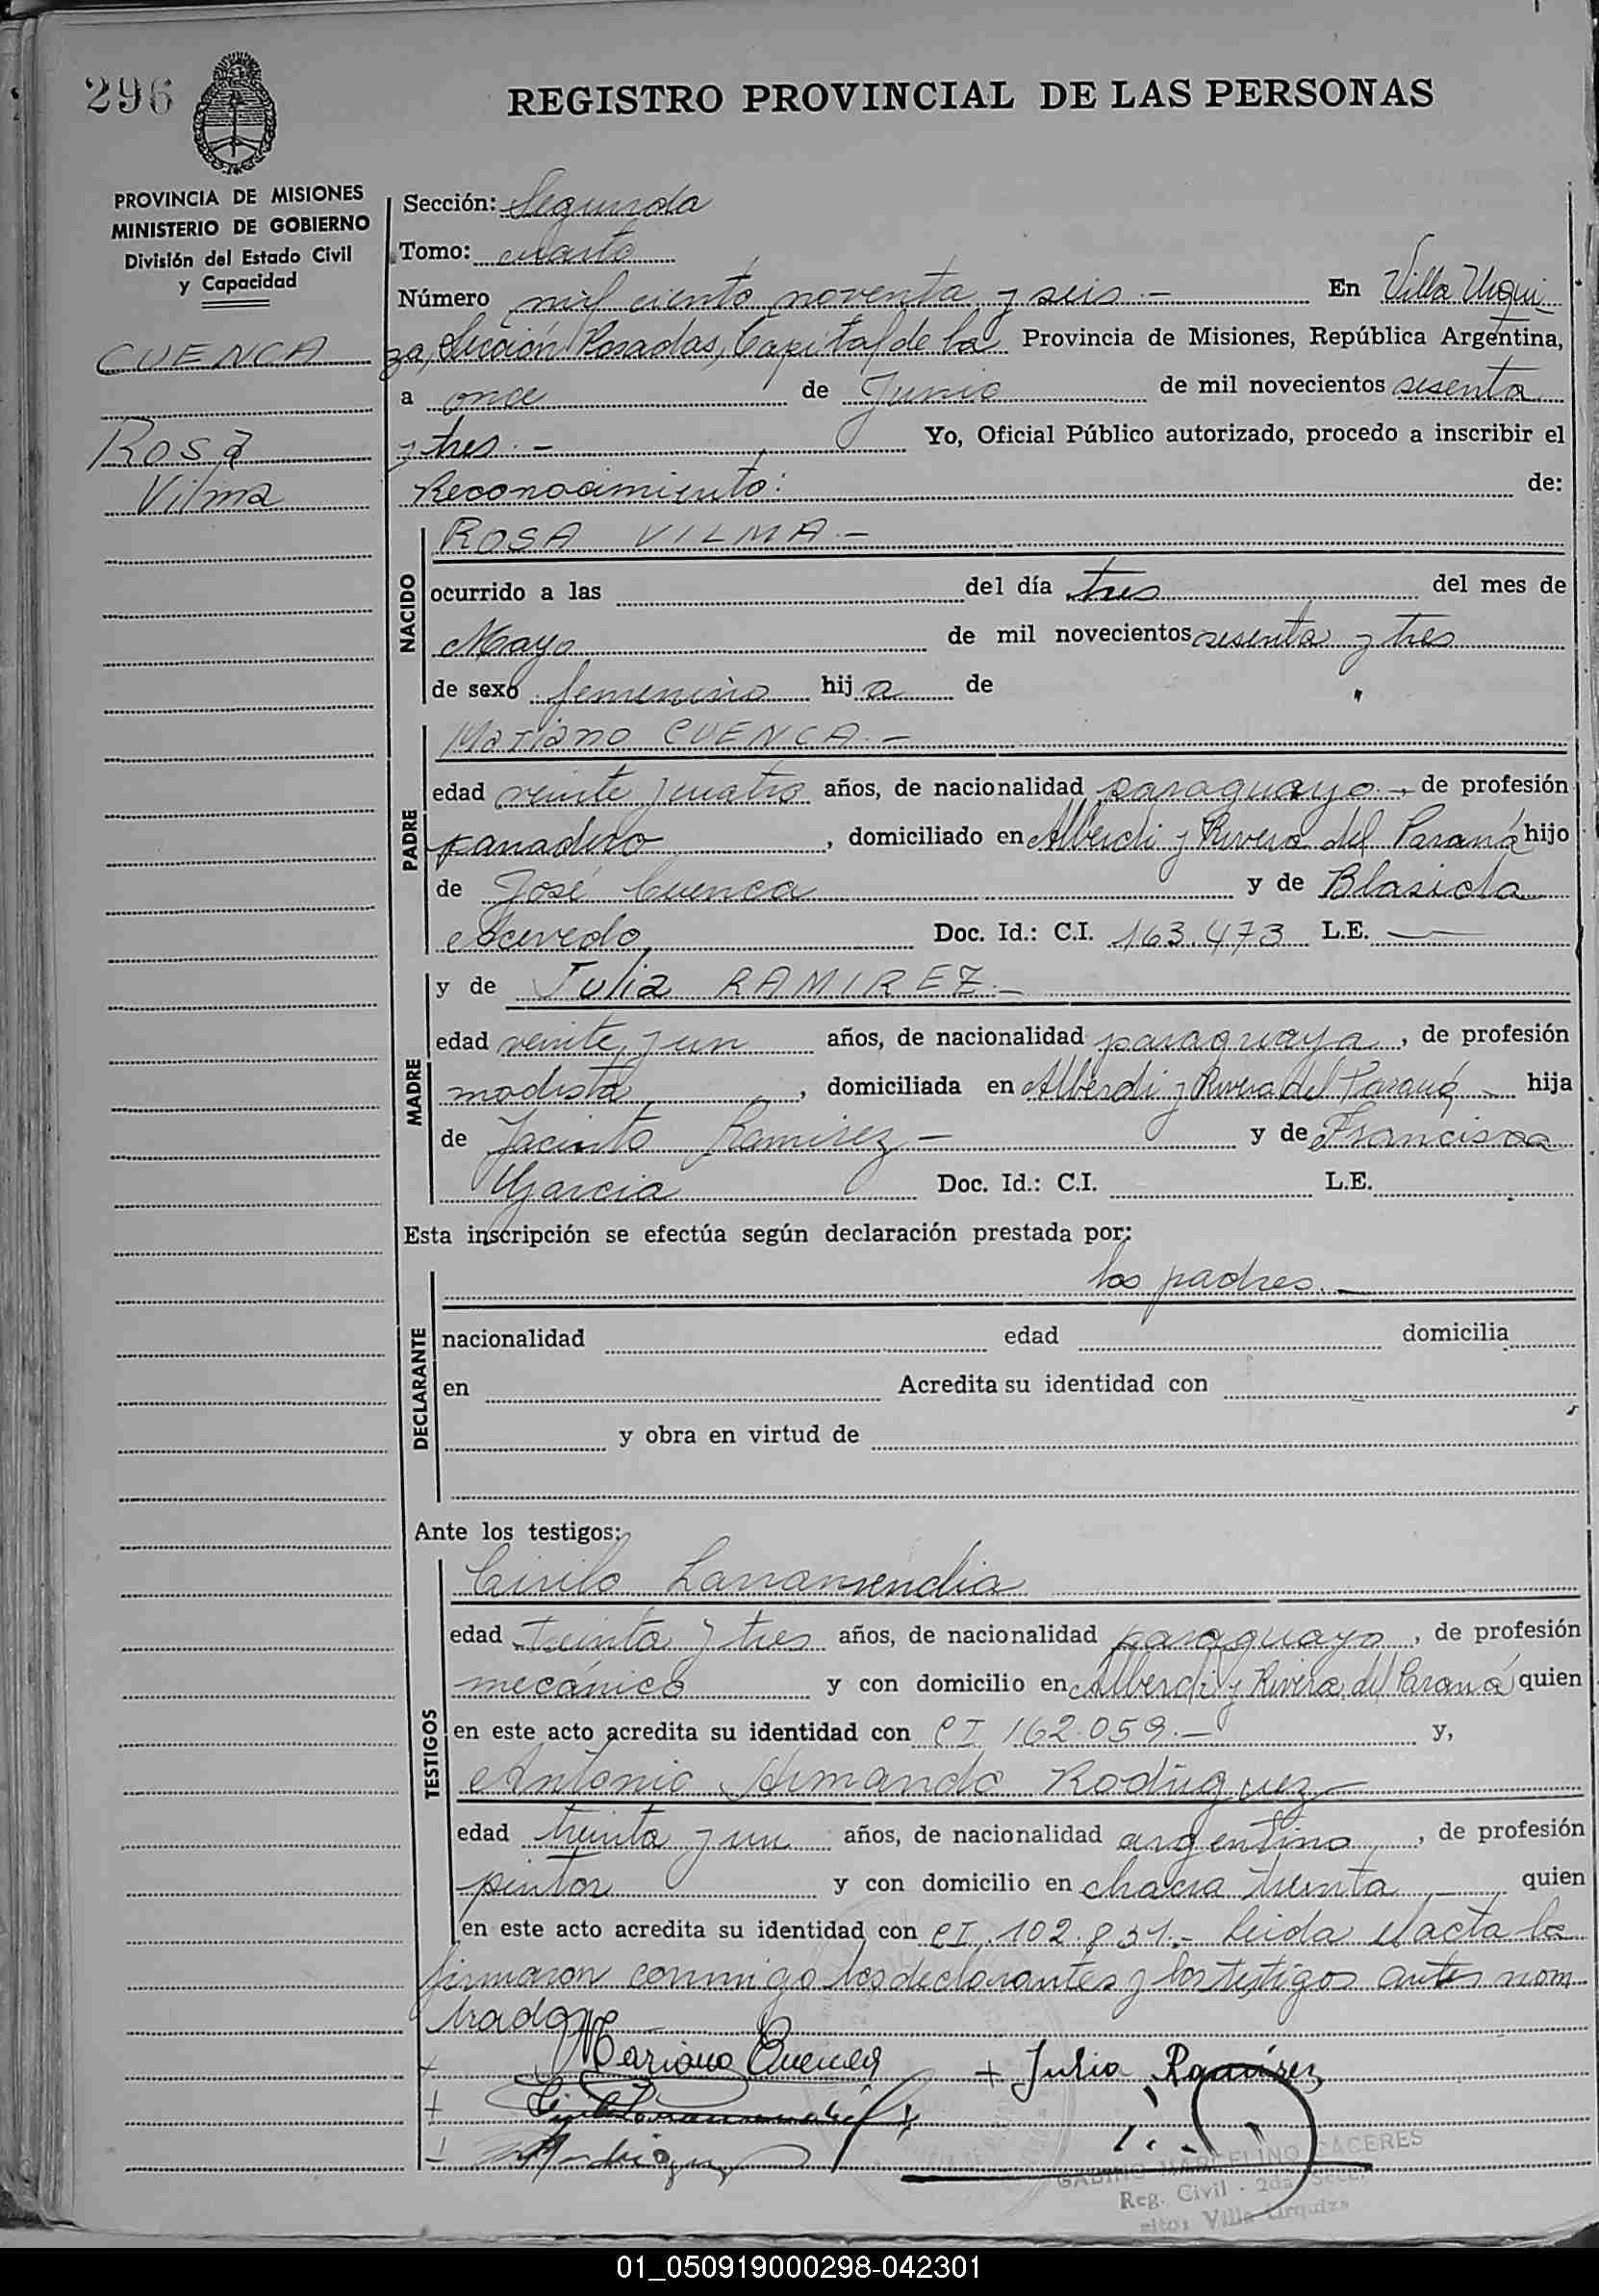 296
REGISTRO PROVINCIAL DE LAS PERSONAS
PROVINCIA DE MISIONES
MINISTERIO DE GOBIERNO
División del Estado Civil
y Capacidad
CUENCA
Rosa
Vilma
Sección: Segunda
Tomo: cuarto
Número mil ciento noventa y seis.- En Villa Urqui
za, Sección Posadas, Capital de la Provincia de Misiones, República Argentina,
a once de Junio de mil novecientos sesenta
y tres.- Yo, Oficial Público autorizado, procedo a inscribir el
Reconocimiento: de:
NACIDO
ROSA VILMA.-
ocurrido a las del día tres del mes de
Mayo de mil novecientos sesenta y tres
de sexo femenino hij a de
PADRE
Mariano CUENCA.-
edad veinte y cuatro años, de nacionalidad paraguayo.-, de profesión
panadero, domiciliado en Alberdi y Rivera del Paraná hijo
de José Cuenca y de Blasida
Acevedo Doc. Id.: C.I. 163.473 L.E. —
MADRE
y de Julia RAMIREZ.-
edad veinte y un años, de nacionalidad paraguaya, de profesión
modista, domiciliada en Alberdi y Rivera del Paraná - hija
de Jacinto Ramirez - y de Francisca
Garcia Doc. Id.: C.I. L.E.
Esta inscripción se efectúa según declaración prestada por:
DECLARANTE
los padres.-
nacionalidad edad domicilia
en Acredita su identidad con
y obra en virtud de
Ante los testigos:
TESTIGOS
Cirilo Larramendia
edad treinta y tres años, de nacionalidad paraguayo, de profesión
mecánico y con domicilio en Alberdi y Rivera del Paraná quien
en este acto acredita su identidad con CI 162.059.- y,
Antonio Armando Rodriguez -
edad treinta y un años, de nacionalidad argentino, de profesión
pintor y con domicilio en chacra treinta quien
en este acto acredita su identidad con CI. 102.831.- Leida el acta la
firmaron conmigo los declarantes y los testigos antes nom
brados
Mariano Cuenca + Julia Ramírez
GABINO MARCELINO CACERES
Reg. Civil - 2da. Secc.
Villa Urquiza
01_050919000298-042301